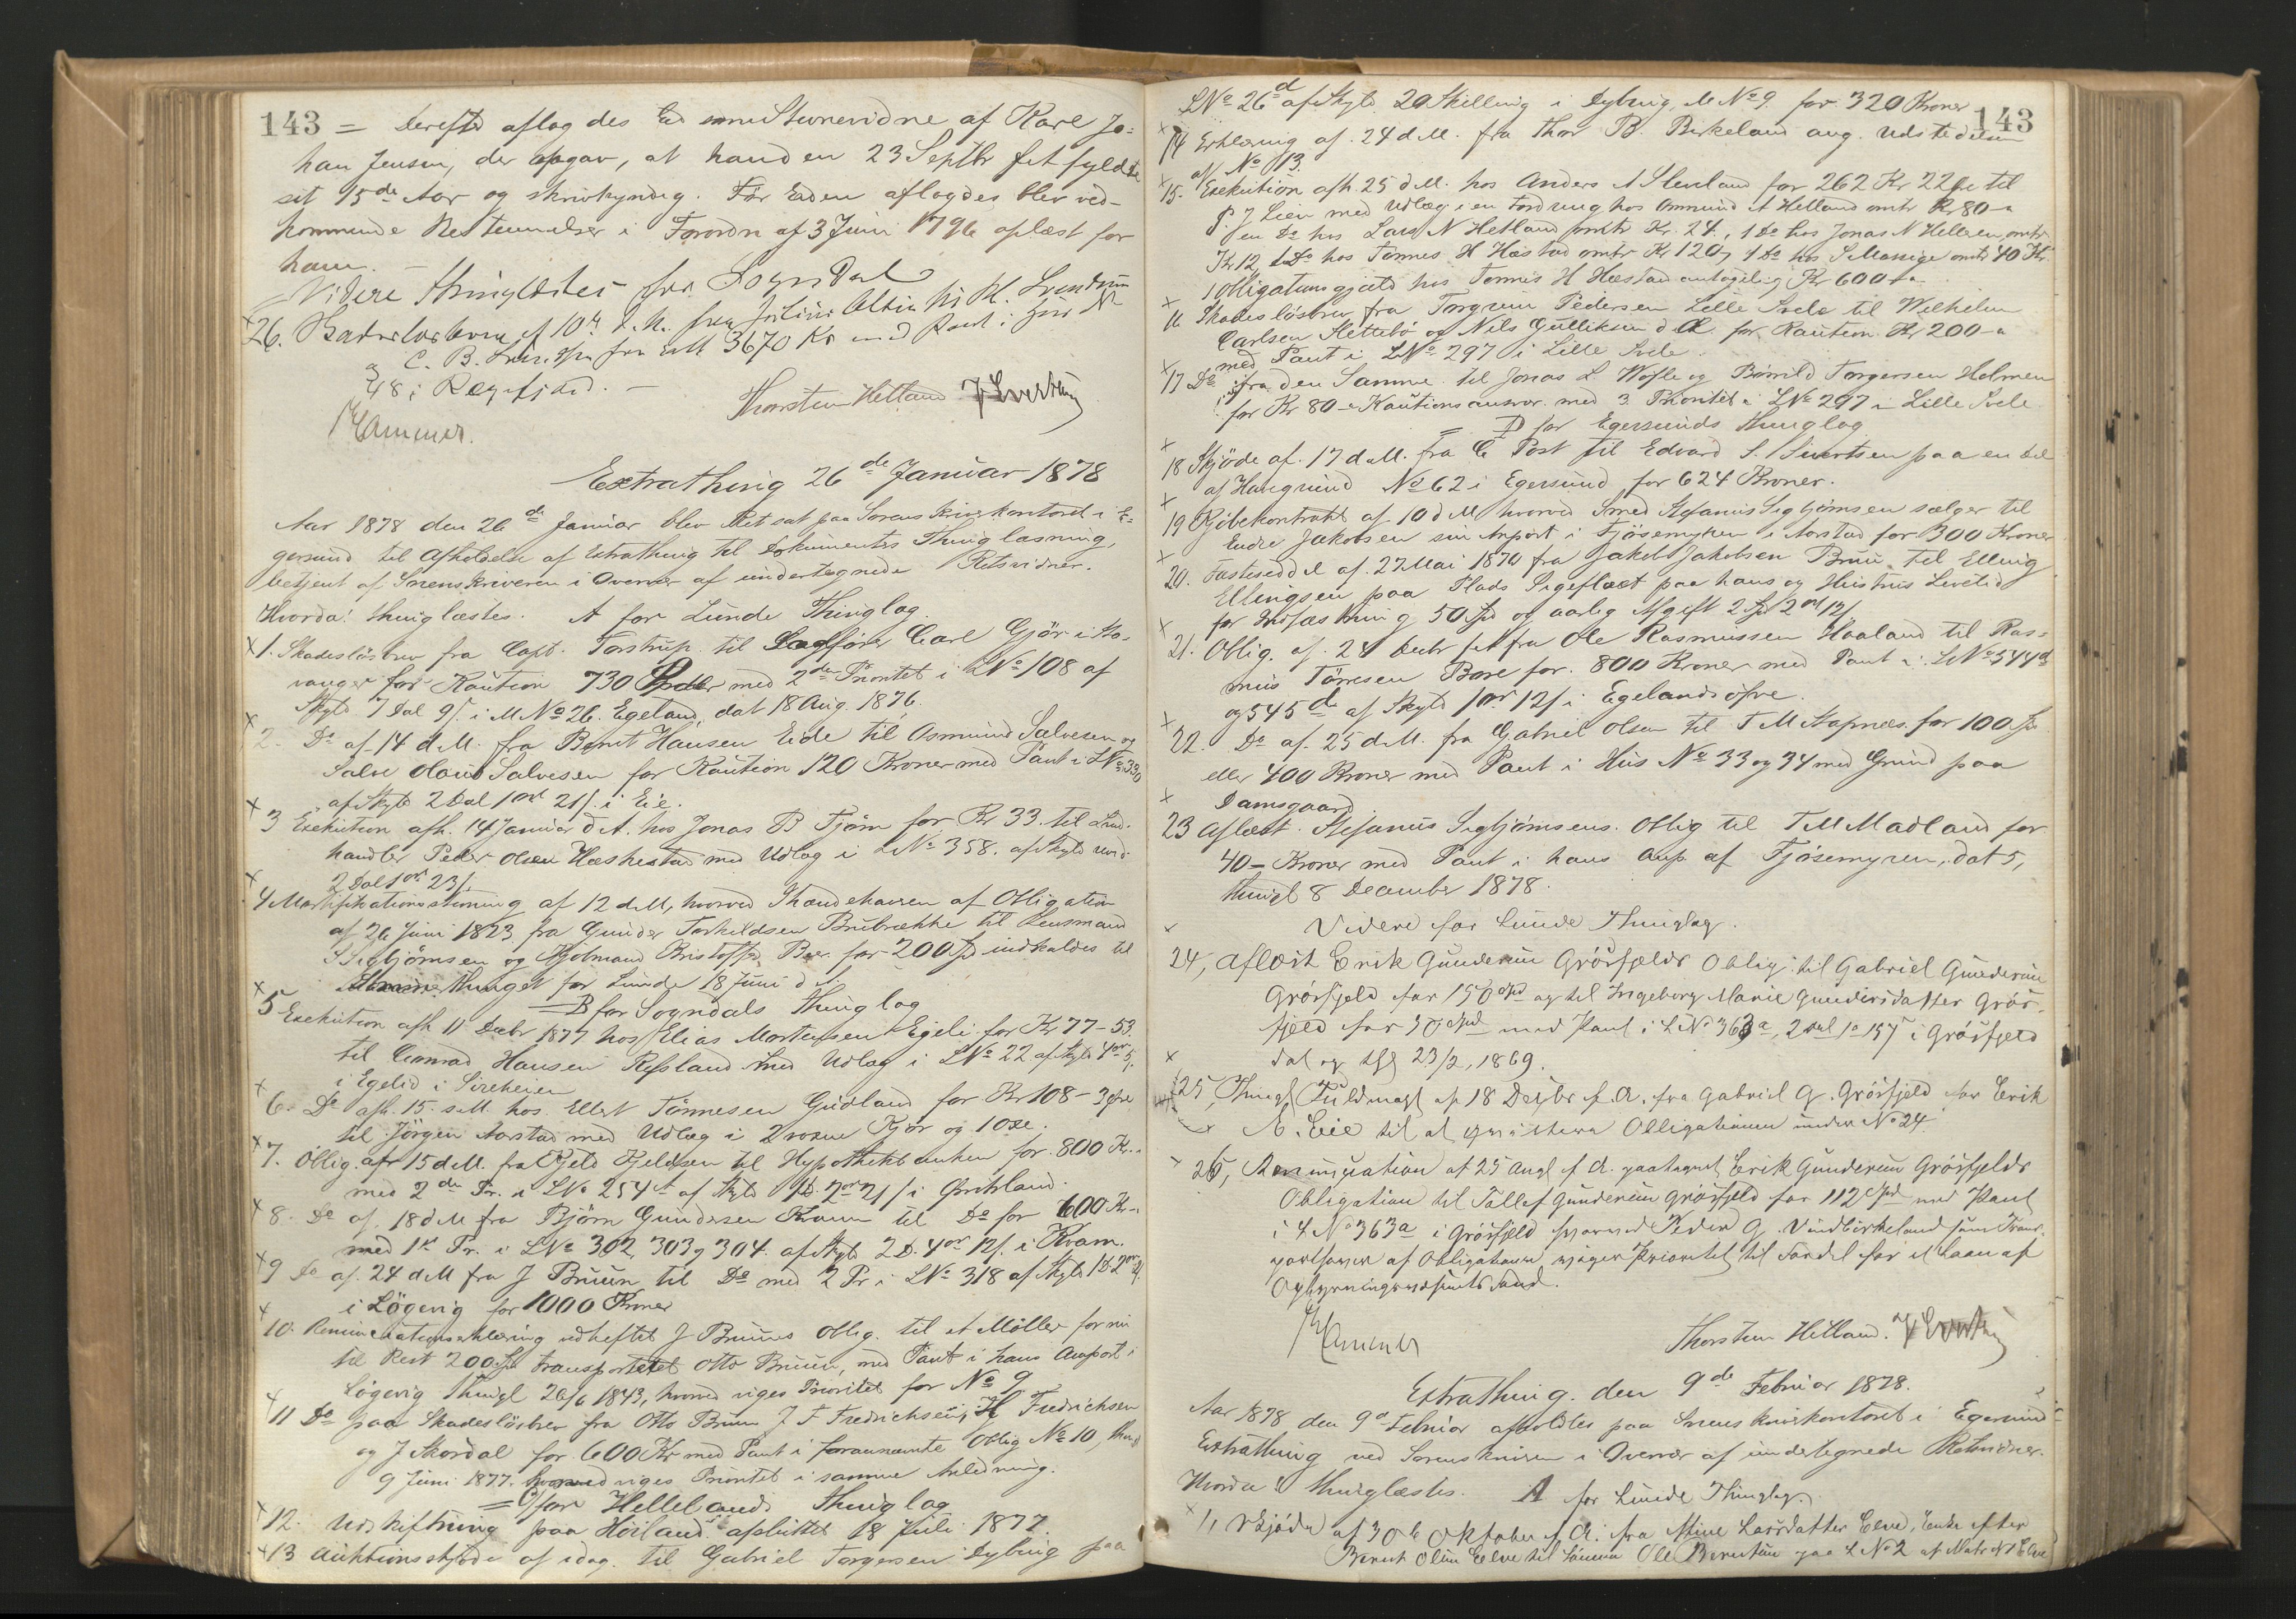 143 = Derefter aflagdes Ed som Stevnevidne af Karl Jo=
han Jensen, der opgav, at han den 23 Septbr f et fyldte
sit 15de Aar og skrivkyndig. Før Eden aflagdes blev ved-
kommende Bestemmelser i Forordn af 3 Juni 1796 oplæst for
ham. —
Videre thinglæstes for Sogndal
26. Skadesløsbrev af 10de d. M. fra
C. B. 3670 Kr med Pant i
48 i Regefjord. —
Thorsten Hetland
Hammer.
Extrathing 26de Januar 1878
Aar 1878 den 26de Januar blev Ret sat paa Sorenskriverkontoret i E=
gersund til Afholdelse af Extrathing til Dokumenters Thinglæsning,
betjent af Sorenskriveren i Overvær af undertegnede Retsvidner.
Hvorda: thinglæstes. A for Lunde Thinglag
1. Skadesløsbrev fra Capt. Torstrup til Sagfører Carl Gjør i Sta-
vanger for Kaution 730 Spdlr med 2den Prioritet i LNo 108 af
Skyld 7 Dal 9 s. i M No 26. Egeland, dat 18 Aug. 1876.
2. Do af 14 d M. fra Berent Hansen Eide til Osmund Salvesen og
Salve Olaus Salvesen for Kaution 120 Kroner med Pant i LNo 330
af Skyld 2 Dal 1 ort 21 s. i Eie.
3 Exekution afh. 14 Januar d A. hos Jonas B Tjørn for Kr 33. til Land-
handler Peder Olsen Hæskestad med Udlæg i LNo 358. af Skyld
2 Dal 1 ort 23 s.
4 Mortifikationsstevning af 12 d M, hvorved Ihændehaveren af Obligation
af 26 Juni 1823 fra Gunder Torkildsen Brubrække til Lensmand
S Sigbjørnsen og Kjøbmand Kristoffer Boer for 200 Spd indkaldes til
Thinget for Lunde 18 Juni d A.
= B for Sogndals Thinglag
5 Exekution afh 11 Decbr 1877 hos Elias Mortensen Egeli for Kr 77 - 53
til Conrad Hansen Refsland med Udlæg i LNo 22 af Skyld 4 ort 5 s.
i Egelid i Sireheien
6. Do afh. 15. d M. hos Ellert Tønnesen Gudland for Kr 108 - 3 Øre
til Jørgen Aarstad med Udlæg i 2 voxne Kjør og 1 Oxe.
7. Oblig. af 15 d M. fra Kjeld Kjeldsen til Hypothekbanken for 800 Kr. -
med 2den Pr. i LNo 254 A af Skyld 1 D. 2 ort 21 s i
8. Do af. 18 d M fra Bjørn Gundersen Kvam til Do for 600 Kr. -
med 1ste Pr. i LNo 302, 303 og 304. af Skyld 2 D. 4 ort 12 s. i Kvam.
9 Do af. 24 d M fra J Bruun til Do med 2 Pr i LNo 318 af Skyld 1 D 2 ort
i Løgevig for 1000 Kroner
10. Renunciationserklæring udheftet J Bruuns Oblig. til A Møller for nu
til Rest 200 Spd transporteret Otto Bruun, med Pant i hans Anpart i
Løgevig thingl 26/6 1843, hvorved viges Prioritet for No 9
11 Do paa Skadesløsbrev fra Otto Bruun J F Fredrichsen, H Fredrichsen
og J Skordal for 600 Kr med Pant i forannævnte Oblig No 10, thingl
9 Juni 1877. hvorved viges Prioritet i samme Anledning.
= C for Hellelands Thinglag
12. Udskiftning paa Høiland afsluttet 18 Juli 1877.
13 Auktionsskjøde af idag. til Gabriel Torgersen Dybing paa
143
LNo 26 d af Skyld 20 Skilling i Dybing, M No 9 for 320 Kroner
14 Erklæring af. 24 d M. fra Thor B. Birkeland ang. Udstedelsen
af No 13.
15. Exekution afh 25 d M. hos Anders A Slevland for 262 Kr 22 Øre til
P. J Lien med Udlæg i en Fordring hos Ommund A Helland omtr Kr 80 -
en Do hos Lars N Hetland omtr Kr. 24., 1 Do hos Jonas N Helleren omtr
Kr 12, 1 Do hos Tønnes H Hæstad omtr Kr 120, 1 Do hos S Massige omtr 40 Kr.
1 Obligationsgjæld hos Tønnes H Hæstad antagelig Kr 600 -
16 Skadesløsbrev fra Torgrim Pedersen Lille Svele til Wilhelm
Carlsen Slettebø og Nils Gulliksen d A. for Kaution Kr 200 -
med Pant i LNo 297 i Lille Svele.
17 Do fra den Samme til Jonas L Wofle og Børrild Torgersen Holmen
for Kr 80 - Kautionsansvar. med 3 Prioritet i LNo 297 i Lille Svele
= D for Egersunds Thinglag
18 Skjøde af. 17 d M. fra C Post til Edvard S. Sivertsen paa en Del
af Havegrund No 62 i Egersund for 624 Kroner.
19 Kjøbekontrakt af 10 d M hvorved Smed Stefanus Sigbjørnsen sælger til
Endre Jakobsen sin Anpart i Fjøsemyren i Aarstad for 300 Kroner
20. Fæsteseddel af. 27 Mai 1870 fra Jakob Jakobsen Bruu. til Elling
Ellingsen paa Plads Sigeflæet paa hans og Hustrus Levetid
for Indfæstning 50 Spd og aarlig Afgift 2 Spd 2 ort 12 s
21. Oblig. af. 28 Decbr f A fra Ole Rasmussen Haaland til Ras=
mus Tørresen Bore for. 800 Kroner med Pant i. LNo 544 d
og 545 d af Skyld 1 ort 12 s i Egelandsøfre.
22. Do af. 25 d M. fra Gabriel Olsen til T M Stapnæs. for 100 Spd
eller 400 Kroner med Pant i Hus No 33 og 34 med Grund paa
Damsgaard
23 Aflæst. Stefanus Sigbjørnsens. Oblig til T M Madland for
40 - Kroner med Pant i hans Anp af Fjøsemyren, dat 5,
thingl 8 December 1878.
Videre for Lunde Thinglag.
24, Aflæst Erik Gundersen Grøsfjelds Oblig. til Gabriel Gundersen
Grøsfjeld for 150 Spd og til Ingeborg Marie Gundersdatter Grøs-
fjeld for 50 Spd med Pant i LNo 363a, 2 Dal 1 o 15 s i Grøsfjeld
dat og thgl 23/2, 1869.
25, Thingl Fuldmagt af 18 Decbr f. A. fra Gabriel G. Grøsfjeld for Erik
N. Eie til at qvittere Obligationen under No 24.
26, Renunciation af 25 Augt f. A. paategnet Erik Gundersen Grøsfjelds
Obligation til Tallef Gundersen Grøsfjeld for 112 Spd med Pant
i LNo 363a i Grøsfjeld hvorved Peder G. Vindbirkeland som Trans-
porthaver af Obligationen viger Prioritet til Fordel for et Laan af
Oplysningsvæsenets Fond.
Hammer
Thorsten Hetland.
Extrathing. den 9de Februar 1878.
Aar 1878 den 9de Februar afholdtes paa Sorenskriverkontoret i Egersund
Extrathing ved Sorenskriveren i Overvær af undertegnede Retsvidner.
Hvorda: thinglæstes. A for Lunde Thinglag.
1, Skjøde af 30te Oktober f. A. fra Stine Larsdatter Elve, Enke efter
Berent Olsen Elve til Sønnen Ole Berentsen paa LNo 2 af Matr No 1 Elve